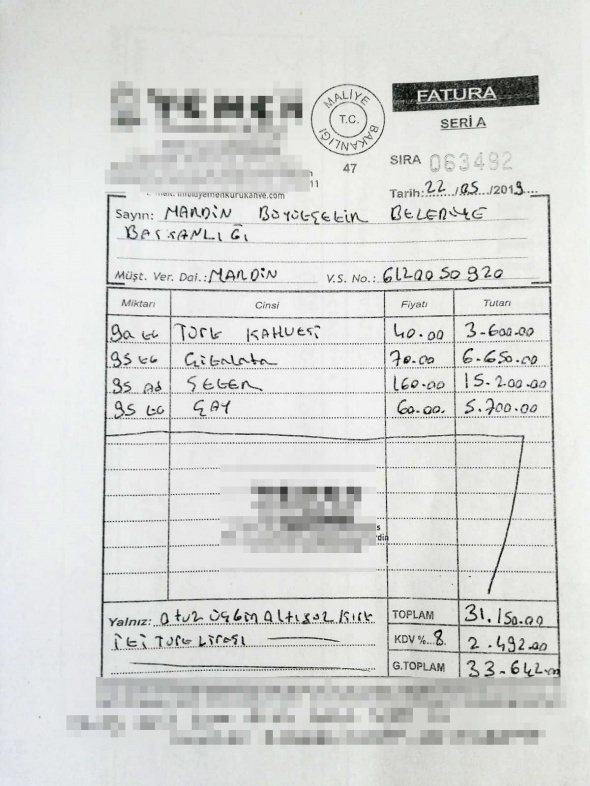 YEMEN
MALİYE BAKANLIĞI
T.C.
47
FATURA
SERİ A
SIRA 063492
11
Tarih: 22 / 05 / 2019
Sayın: MARDİN BÜYÜKŞEHİR BELEDİYE
BAŞKANLIĞI
Müşt. Ver. Dai.: MARDİN V.S. No.: 6120050920
Miktarı Cinsi Fiyatı Tutarı
90 KG TÜRK KAHVESİ 40.00 3.600.00
95 KG Çikolata 70.00 6.650.00
95 Ad ŞEKER 160.00 15.200.00
95 KG ÇAY 60.00. 5.700.00
YEMEN
Yalnız: otuz üçbin altıyüz kırk
iki TÜRK LİRASI
TOPLAM 31.150.00
KDV %.8. 2.492.00
G.TOPLAM 33.642.00